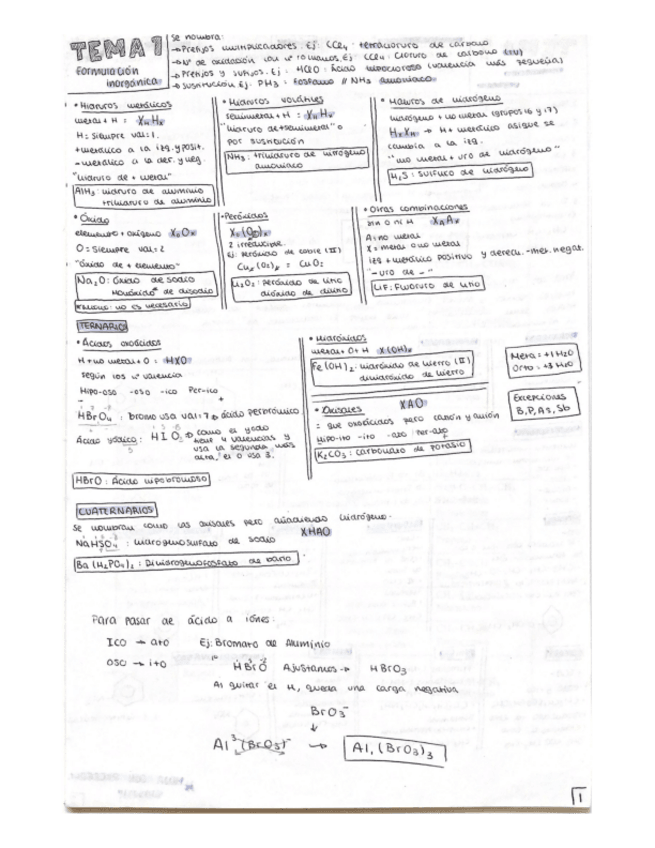 TEMA 1
Formulación
inorgánica
Se nombra:
→Prefijos multiplicadores. Ej: CCl4: tetracloruro de carbono
→Nº de oxidación con nº romanos. Ej: CCl4: Cloruro de carbono (IV)
→Prefijos y sufijos. Ej: HClO: Ácido hipocloroso (valencia más pequeña)
→Sustitución Ej: PH3: Fosfano // NH3 amoniaco
• Hidruros metálicos
metal + H = XnHx
H = siempre val=1.
+metálico a la izq. y posit.
-metálico a la der. y neg.
"hidruro de + metal"
AlH3: hidruro de aluminio
trihidruro de aluminio
• Hidruros volátiles
semimetal + H = XnHx
"hidruro de+semimetal" o
por sustitución
NH3: trihidruro de nitrógeno
amoniaco
• Haluros de hidrógeno
hidrógeno + no metal (grupos 16 y 17)
HxXn → H + metálico
cambia a la izq.
"no metal + uro de hidrógeno"
H2S: sulfuro de hidrógeno
• Óxido
elemento + oxígeno XnOx
O = siempre val=2
"óxido de + elemento"
Na2O: Óxido de sodio
Monóxido de disodio
no es necesario
• Peróxidos
X2(O2)x
2 irreducible.
Ej: Peróxido de cobre (II)
Cu2(O2)2 = CuO2
Li2O2: peróxido de litio
dióxido de dilitio
• Otras combinaciones
sin O ni H XnAx
A= no metal
X = metal o no metal
izq + metálico positivo y derecu. -met. negat.
"-uro de -"
LiF: Fluoruro de litio
TERNARIOS
• Ácidos oxoácidos
H + no metal + O = HXO
según los nº valencia
Hipo-oso -oso -ico Per-ico
- +
HBrO4: bromo usa val=7 → ácido perbrómico
Ácido yódico: HIO3 → como el yodo
tiene 4 valencias y
usa la segunda más
alta, el O usa 3.
HBrO: Ácido hipobromoso
• Hidróxidos
metal + O + H X(OH)x
Fe(OH)2: hidróxido de hierro (II)
dihidróxido de hierro
• Oxisales XAO
= que oxoácidos pero catión y anión
Hipo-ito -ito -ato Per-ato
K2CO3: carbonato de potasio
Meta = +1 H2O
Orto = +3 H2O
Excepciones
B, P, As, Sb
CUATERNARIOS
Se nombran como las oxisales pero añadiendo hidrógeno.
XHAO
NaHSO4: hidrogenosulfato de sodio
Ba(H2PO4)2: Dihidrogenofosfato de bario
Para pasar de ácido a iones:
ICO → ato
OSO → ito
Ej: Bromato de Aluminio
HBrO Ajustamos→ HBrO3
Al quitar el H, queda una carga negativa
BrO3-
↓
Al3 (BrO3)- → Al1(BrO3)3
1